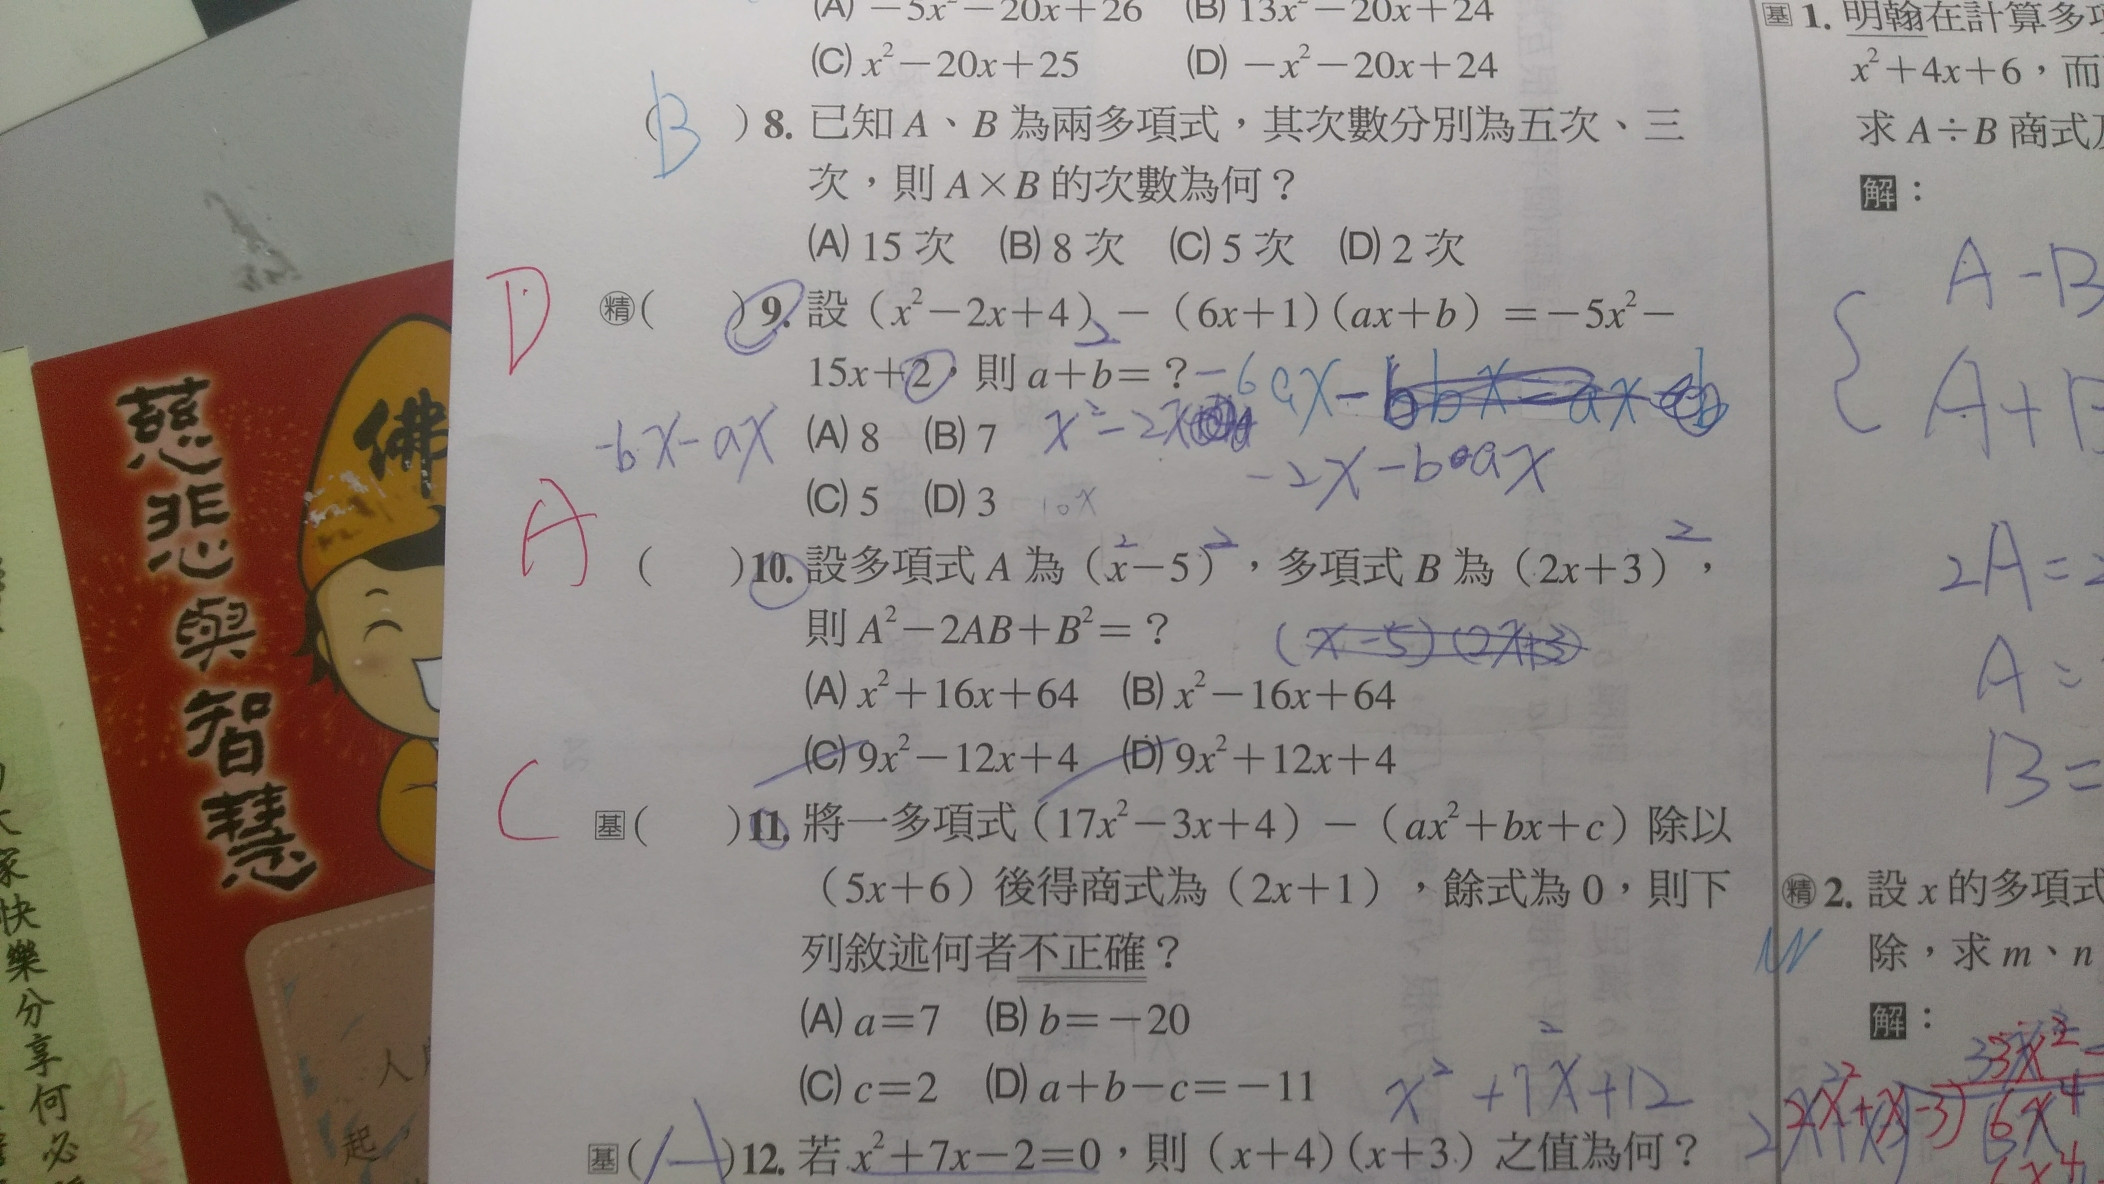 (A) −5x²−20x+26 (B) 13x²−20x+24
(C) x²−20x+25 (D) −x²−20x+24
(B) 8. 已知 A、B 為兩多項式，其次數分別為五次、三
次，則 A×B 的次數為何？
(A) 15 次 (B) 8 次 (C) 5 次 (D) 2 次
D
精 ( ) 9. 設（x²−2x+4）−（6x+1）（ax+b）=−5x²−
2
15x+2，則 a+b=？
-bx-ax
-2x-b
(A) 8 (B) 7
(C) 5 (D) 3
10x
A
( ) 10. 設多項式 A 為（x−5），多項式 B 為（2x+3），
則 A²−2AB+B²=？
(x-5)(2x+3)
(A) x²+16x+64 (B) x²−16x+64
(C) 9x²−12x+4 (D) 9x²+12x+4
C
基 ( ) 11. 將一多項式（17x²−3x+4）−（ax²+bx+c）除以
（5x+6）後得商式為（2x+1），餘式為 0，則下
列敘述何者不正確？
(A) a=7 (B) b=−20
(C) c=2 (D) a+b−c=−11
x²+7x+12
基 (A) 12. 若 x²+7x−2=0，則（x+4）（x+3）之值為何？
基 1. 明翰在計算多
x²+4x+6，而
求 A÷B 商式
解：
A-B
A+B
2A=2
A=
B=
精 2. 設 x 的多項式
除，求 m、n
解：
慈悲與智慧
佛
人
起，
家快樂分享何必